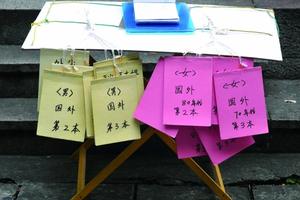 〈男〉
国外
第2本
〈男〉
国外
第3本
〈女〉
国外
80年移
第2本
〈女〉
国外
70年移
第3本